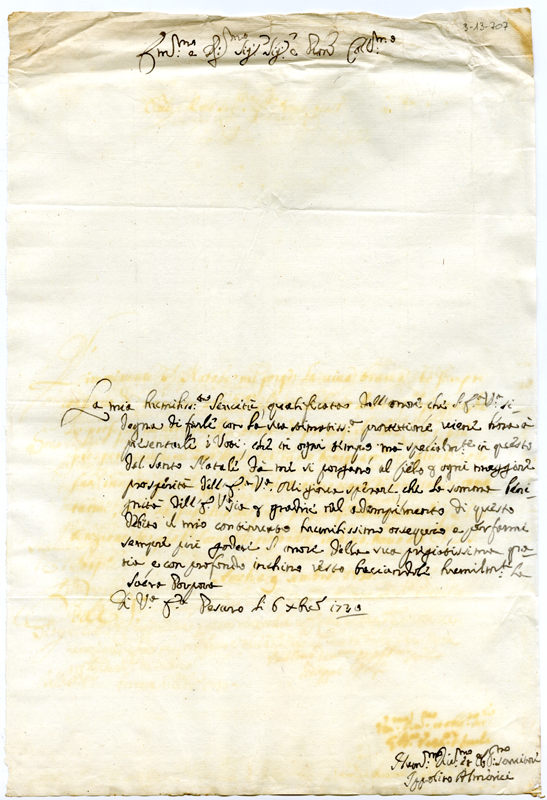 3-13-707
Em.mo e R.mo Sig.r Sig.r e Pron Col.mo
La mia humiliss.ma servitù qualificata dall'onore che V.ra si
degna di farle con la sua stimatiss.ma protezione viene hora a
presentarle i Voti, che in ogni tempo mà specialm.te in questo
del Santo Natale da me si porgono al Cielo p ogni maggiore
prosperità dell' V.ra Mi giova sperare che la somma beni
gnità dell' V.ra sia p gradire nel adempimento di questo
debito il mio continuato humilissimo ossequio e per farmi
sempre più godere l'onore della sua pregiatissima gra
tia e con profondo inchino resto baciandole humilm.te la
Sacra Porpora
Di V.ra Pesaro li 6 Xbre 1720
Humil.mo Div.mo et Obl.mo servitore
Ippolito Almerici